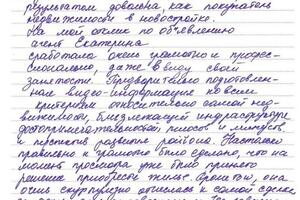 результатом довольна, как покупатель
недвижимости в новостройке.
На мой отклик по объявлению
агент Екатерина
сработала очень грамотно и профес-
сионально, даже в виду своей
занятости. Предварительно подготовлен-
ная видео-информация по всем
критериям относительно самой нед-
вижимости, близлежащей инфраструктуре
плюсов и минусов,
и перспектив развития района. Настолько
правильно и грамотно было сделано, что на
момент просмотра уже было принято
решение приобрести жилье. она
очень скрупулезно отнеслась к самой сделке